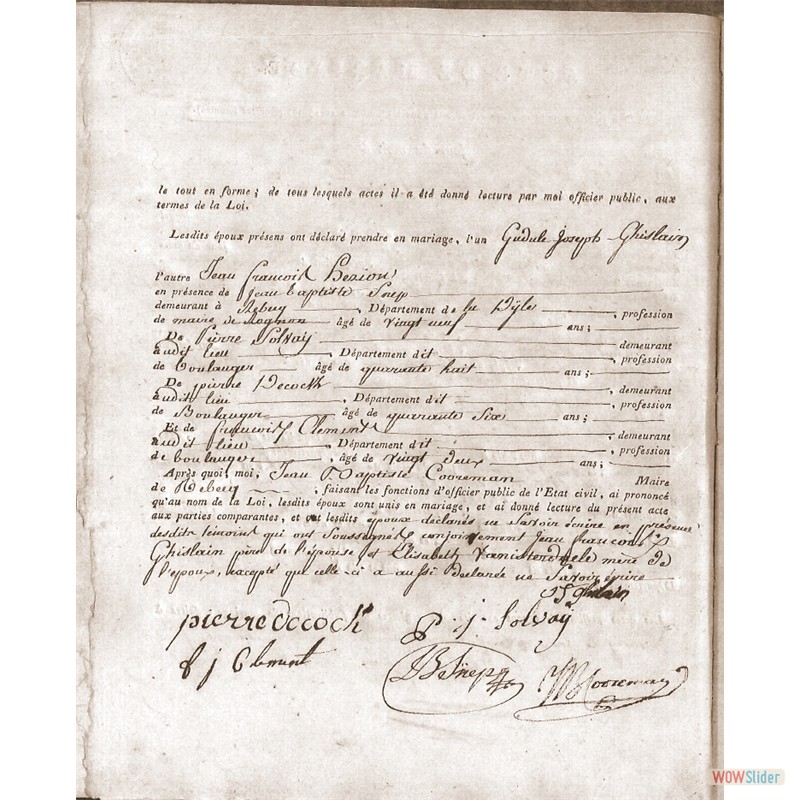 le tout en forme; de tous lesquels actes il a été donné lecture par moi officier public, aux
termes de la Loi.
Lesdits époux présens ont déclaré prendre en mariage, l'un Gudule Joseph Ghislain
l'autre Jean francois Hezion
en présence de jean baptiste Snep
demeurant à Rebecq, Département de la Dÿle, profession
de maire de Rognon âgé de vingt neuf ans;
De Pierre Solvaÿ demeurant
audit lieu, Département dit, profession
de boulanger âgé de quarante huit ans;
De pierre Decock demeurant
audit lieu, Département dit, profession
de Boulanger âgé de quarante Six ans;
Et de francois Clement demeurant
audit lieu, Département dit, profession
de boulanger, âgé de vingt deux ans;
Après quoi, moi, Jean Baptiste Cooreman Maire
de Rebecq, faisant les fonctions d'officier public de l'Etat civil, ai prononcé
qu'au nom de la Loi, lesdits époux sont unis en mariage, et ai donné lecture du présent acte
aux parties comparantes, et ont lesdits époux déclarés ne Savoir écrire en présence
desdits témoins qui ont Soussignés conjointement Jean francois
Ghislain père de l'épouse et Elisabeth Vanistendaele mère de
l'epoux, excepté que celle-ci a aussi Declarée ne Savoir écrire
JF ghislain
pierre decock
P. j. Solvaÿ
f j Clement
JB Snep
JB Cooreman
WOWSlider